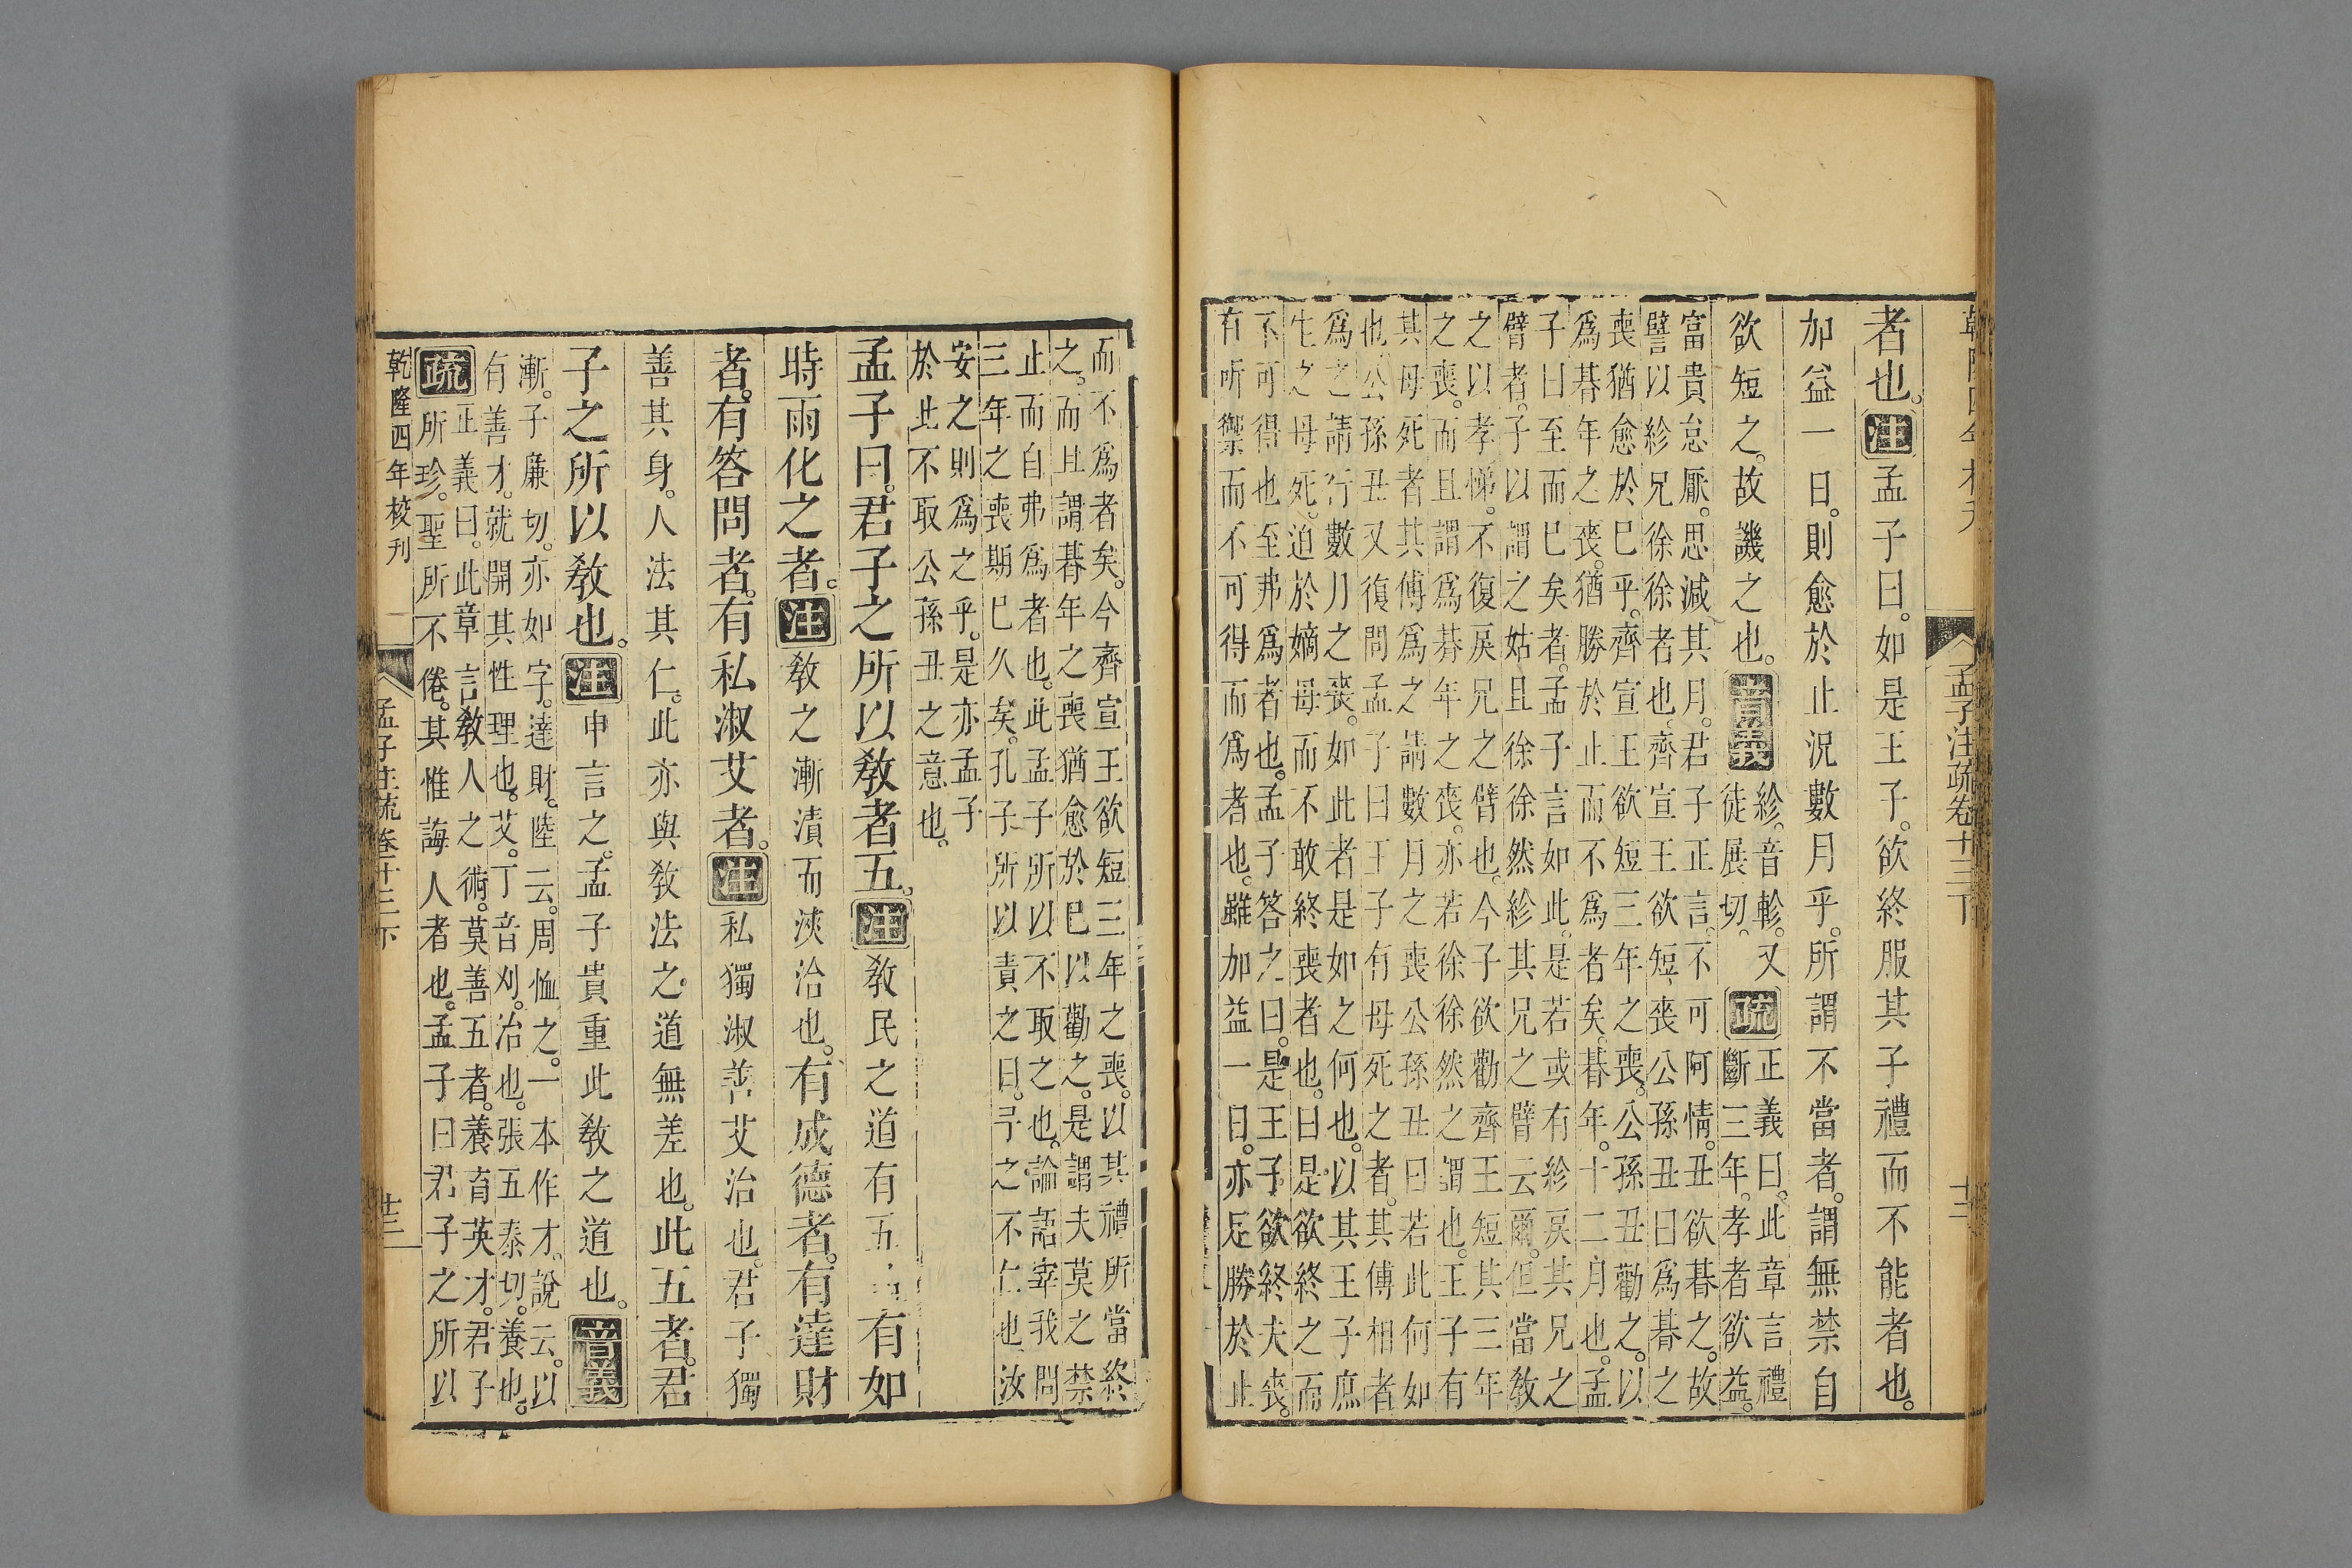 孟子注疏卷十三下
者也。注孟子曰。如是王子。欲終服其子禮而不能者也。
加益一日。則愈於止。況數月乎。所謂不當者。謂無禁自
欲短之。故譏之也。音義紾。音軫。又
徒展切。疏正義曰。此章言禮
斷三年。孝者欲益。
富貴怠厭。思減其月。君子正言。不可阿情。丑欲朞之。故
譬以紾兄徐徐者也。齊宣王欲短喪公孫丑曰爲朞之
喪猶愈於巳乎。齊宣王欲短三年之喪。公孫丑勸之。以
爲朞年之喪。猶勝於止而不爲者矣。朞年。十二月也。孟
子曰至而巳矣者。孟子言如此。是若或有紾戾其兄之
臂者。子以謂之姑且徐徐然紾其兄之臂云爾。但當敎
之以孝悌。不復戾兄之臂也。今子欲勸齊王短其三年
之喪。而且謂爲朞年之喪。亦若徐徐然之謂也。王子有
其母死者其傅爲之請數月之喪公孫丑曰若此何如
也公孫丑又復問孟子曰王子有母死之者。其傅相者
爲之請行數月之喪。如此者是如之何也。以其王子庶
生之母死。迫於嫡母而不敢終喪者也。曰是欲終之而
不可得也至弗爲者也。孟子答之曰。是王子欲終夫喪。
有所禦而不可得而爲者也。雖加益一日。亦足勝於止
而不爲者矣。今齊宣王欲短三年之喪。以其禮所當終
之。而且謂朞年之喪猶愈於巳以勸之。是謂夫莫之禁
止而自弗爲者也。此孟子所以不取之也。論語宰我問
三年之喪期巳久矣。孔子所以責之曰。予之不仁也汝
安之則爲之乎。是亦孟子
於此不取公孫丑之意也。
孟子曰。君子之所以敎者五。注敎民之道有五者有如
時雨化之者。注敎之漸漬而浹洽也。有成德者。有達財
者。有答問者。有私淑艾者。注私獨淑善艾治也。君子獨
善其身。人法其仁。此亦與敎法之道無差也。此五者。君
子之所以敎也。注申言之。孟子貴重此敎之道也。音義
漸。子廉切。亦如字。達財。陸云。周恤之。一本作才。說云。以
有善才。就開其性理也。艾。丁音刈。治也。張五泰切。養也。
疏正義曰。此章言敎人之術。莫善五者。養育英才。君子
所珍。聖所不倦。其惟誨人者也。孟子曰君子之所以
乾隆四年校刊
孟子注疏卷十三下